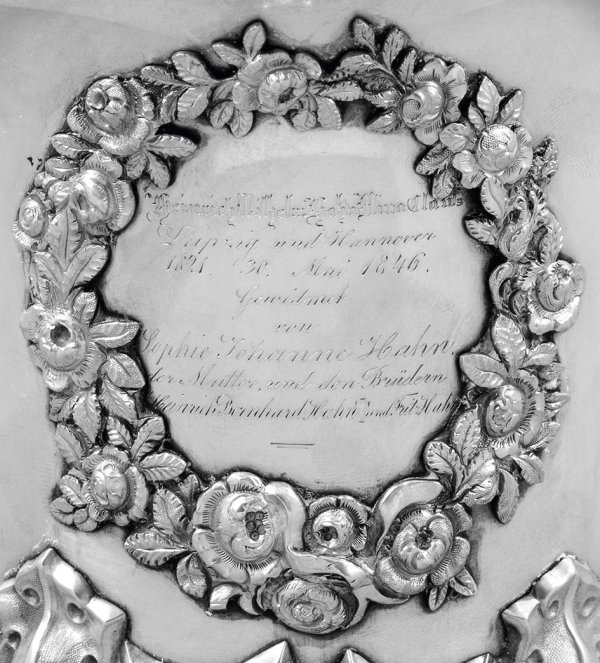 Heinrich Wilhelm Hahn Alma Claus
Leipzig und Hannover
1821. 30. Mai 1846.
Gewidmet
von
Sophie Johanne Hahn,
der Mutter, und den Brüdern
Heinrich Bernhard Hahn, und Frd. Hahn